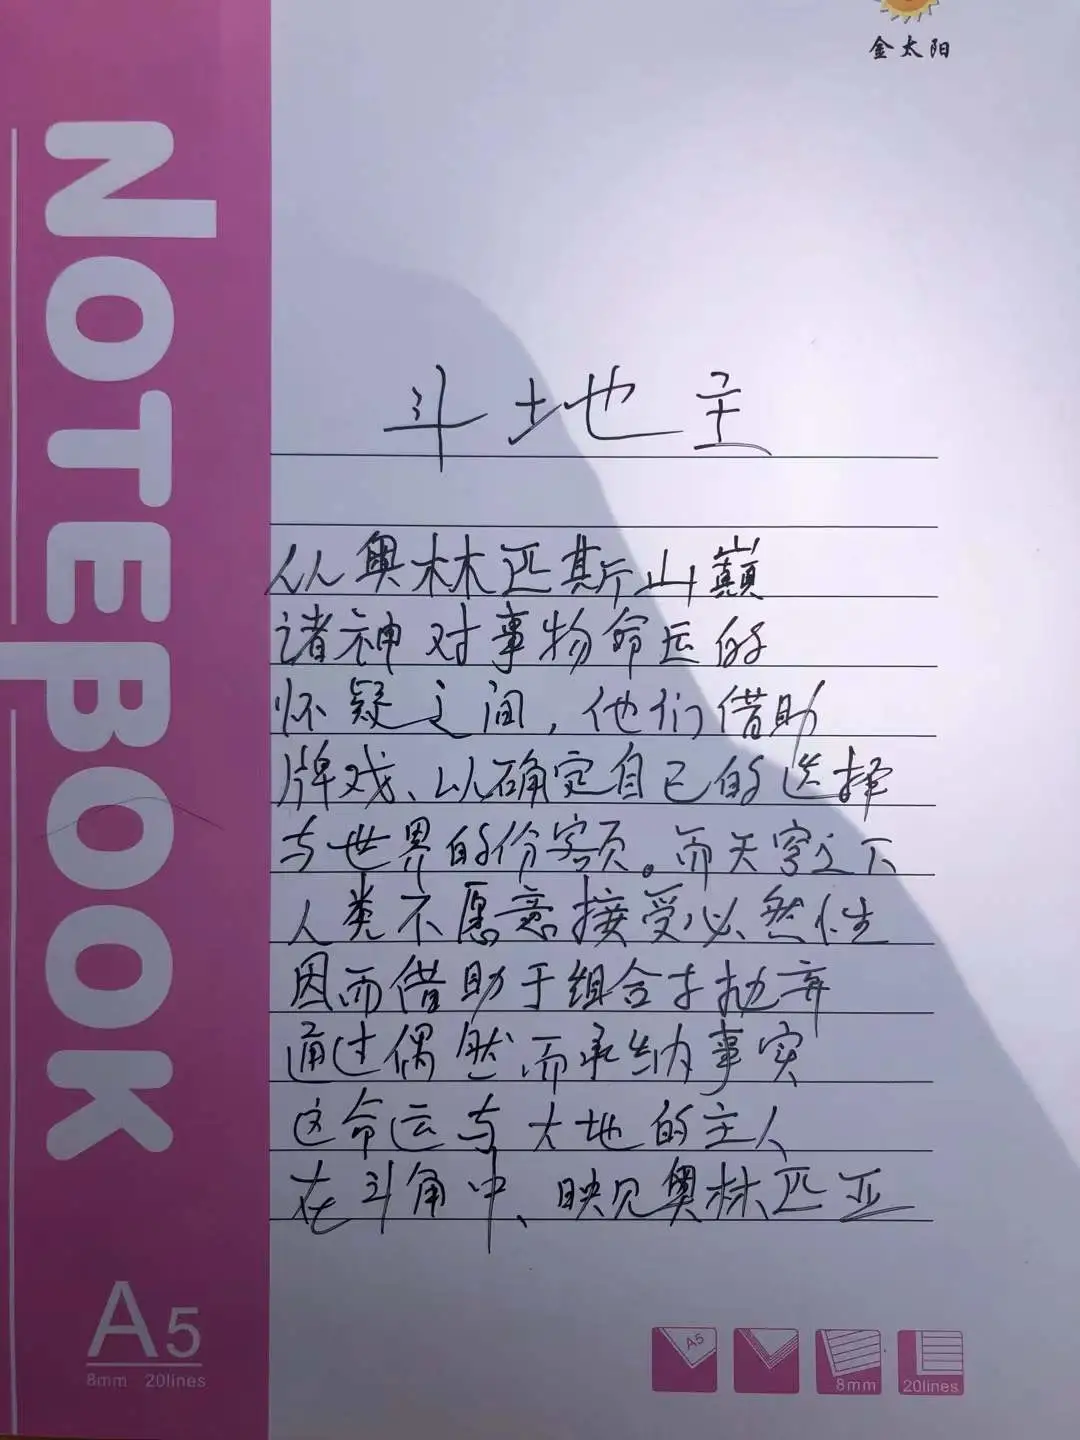 金太阳
NOTEBOOK
斗地主
从奥林匹斯山巅
诸神对事物命运的
怀疑之间，他们借助
牌戏、以确定自己的选择
与世界的份额。而天穹之下
人类不愿意接受必然性
因而借助于组合与抛弃
通过偶然而承纳事实
这命运与大地的主人
在斗角中、映见奥林匹亚
A5
8mm 20lines
A5
8mm
20lines